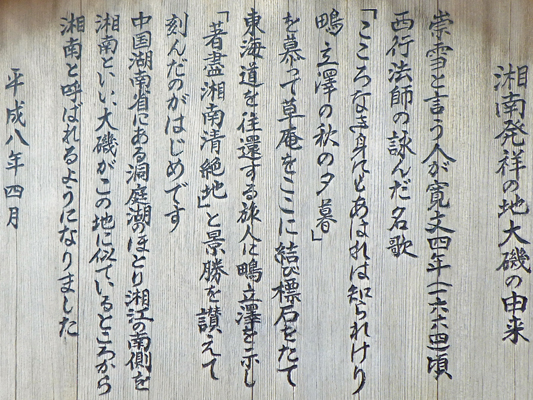 湘南発祥の地大磯の由来
崇雪と言う人が寛文四年(一六六四)頃
西行法師の詠んだ名歌
「こころなき身にもあはれは知られけり
鴫立澤の秋の夕暮」
を慕って草庵をここに結び標石をたて
東海道を往還する旅人に鴫立澤を示し
「著盡湘南清絶地」と景勝を讃えて
刻んだのがはじめです
中国湖南省にある洞庭湖のほとり湘江の南側を
湘南といい大磯がこの地に似ているところから
湘南と呼ばれるようになりました
平成八年四月